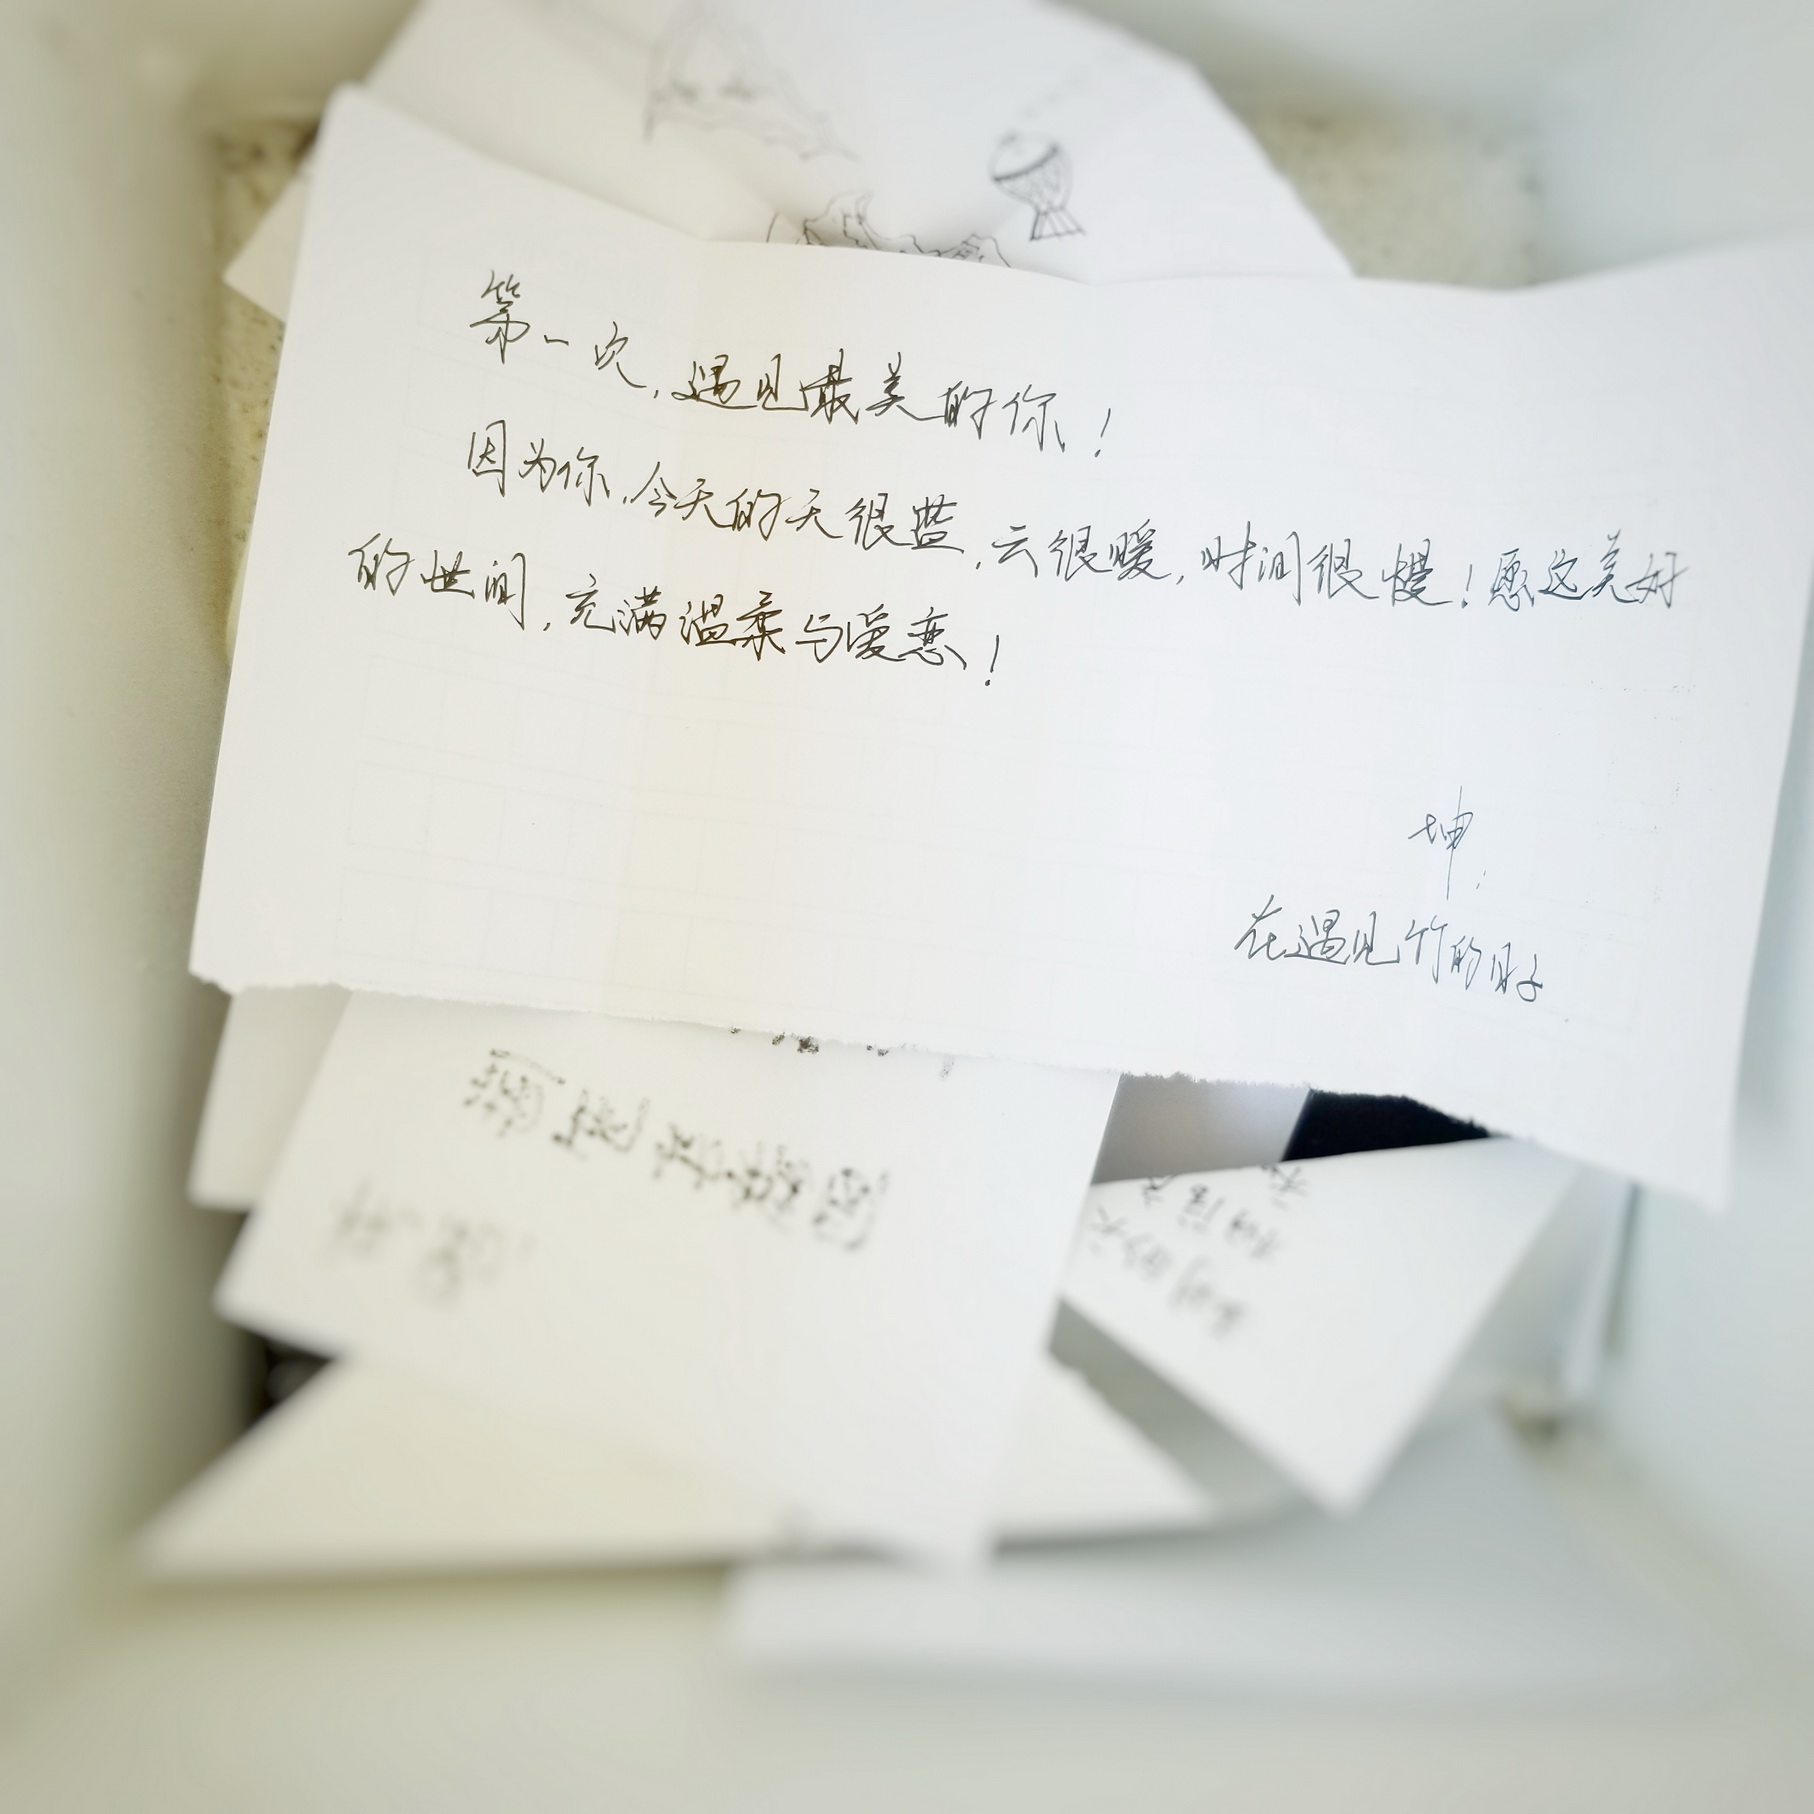 第一次,遇见最美的你!
因为你,今天的天很蓝,云很暖,时间很慢!愿这美好
的世间,充满温柔与爱恋!
坤
在遇见竹的日子